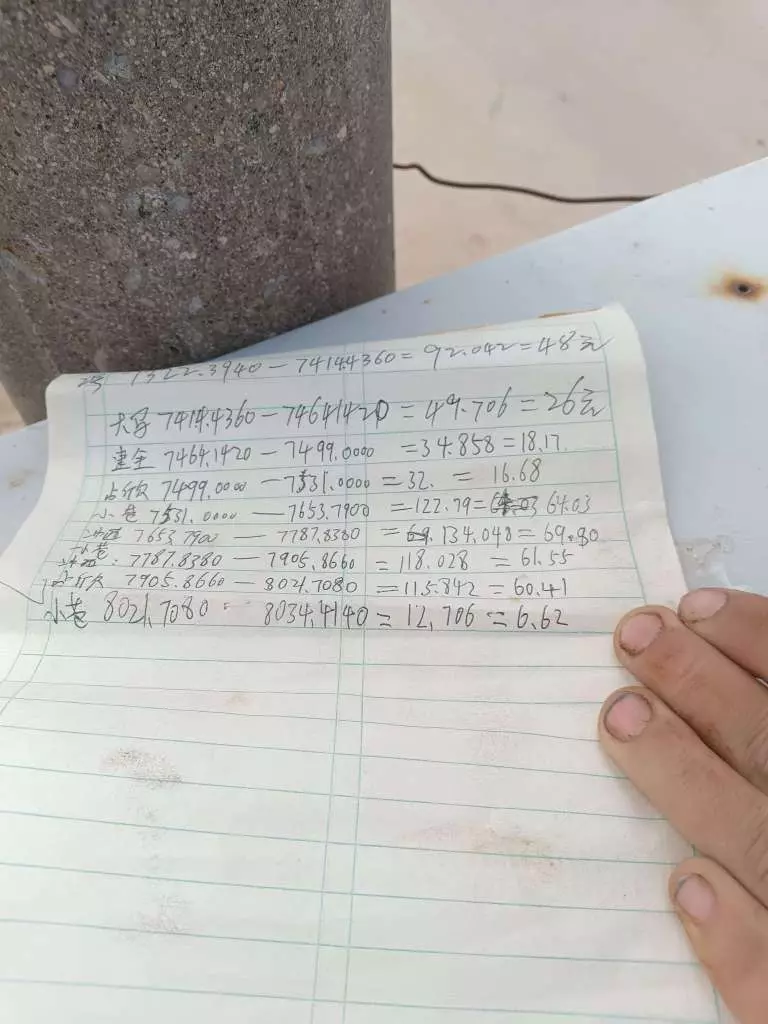 7322.3940 — 7414.4360 = 92.042 = 48元
7414.4360 — 7464.1420 = 49.706 = 26元
建全 7464.1420 — 7499.0000 = 34.858 = 18.17
占欣 7499.0000 — 7531.0000 = 32. = 16.68
小巷 7531.0000 — 7653.7900 = 122.79 = 64.03
7653.7900 — 7787.8380 = 134.048 = 69.80
7787.8380 — 7905.8660 = 118.028 = 61.55
占欣 7905.8660 — 8021.7080 = 115.842 = 60.41
小巷 8021.7080 8034.4140 = 12.706 = 6.62